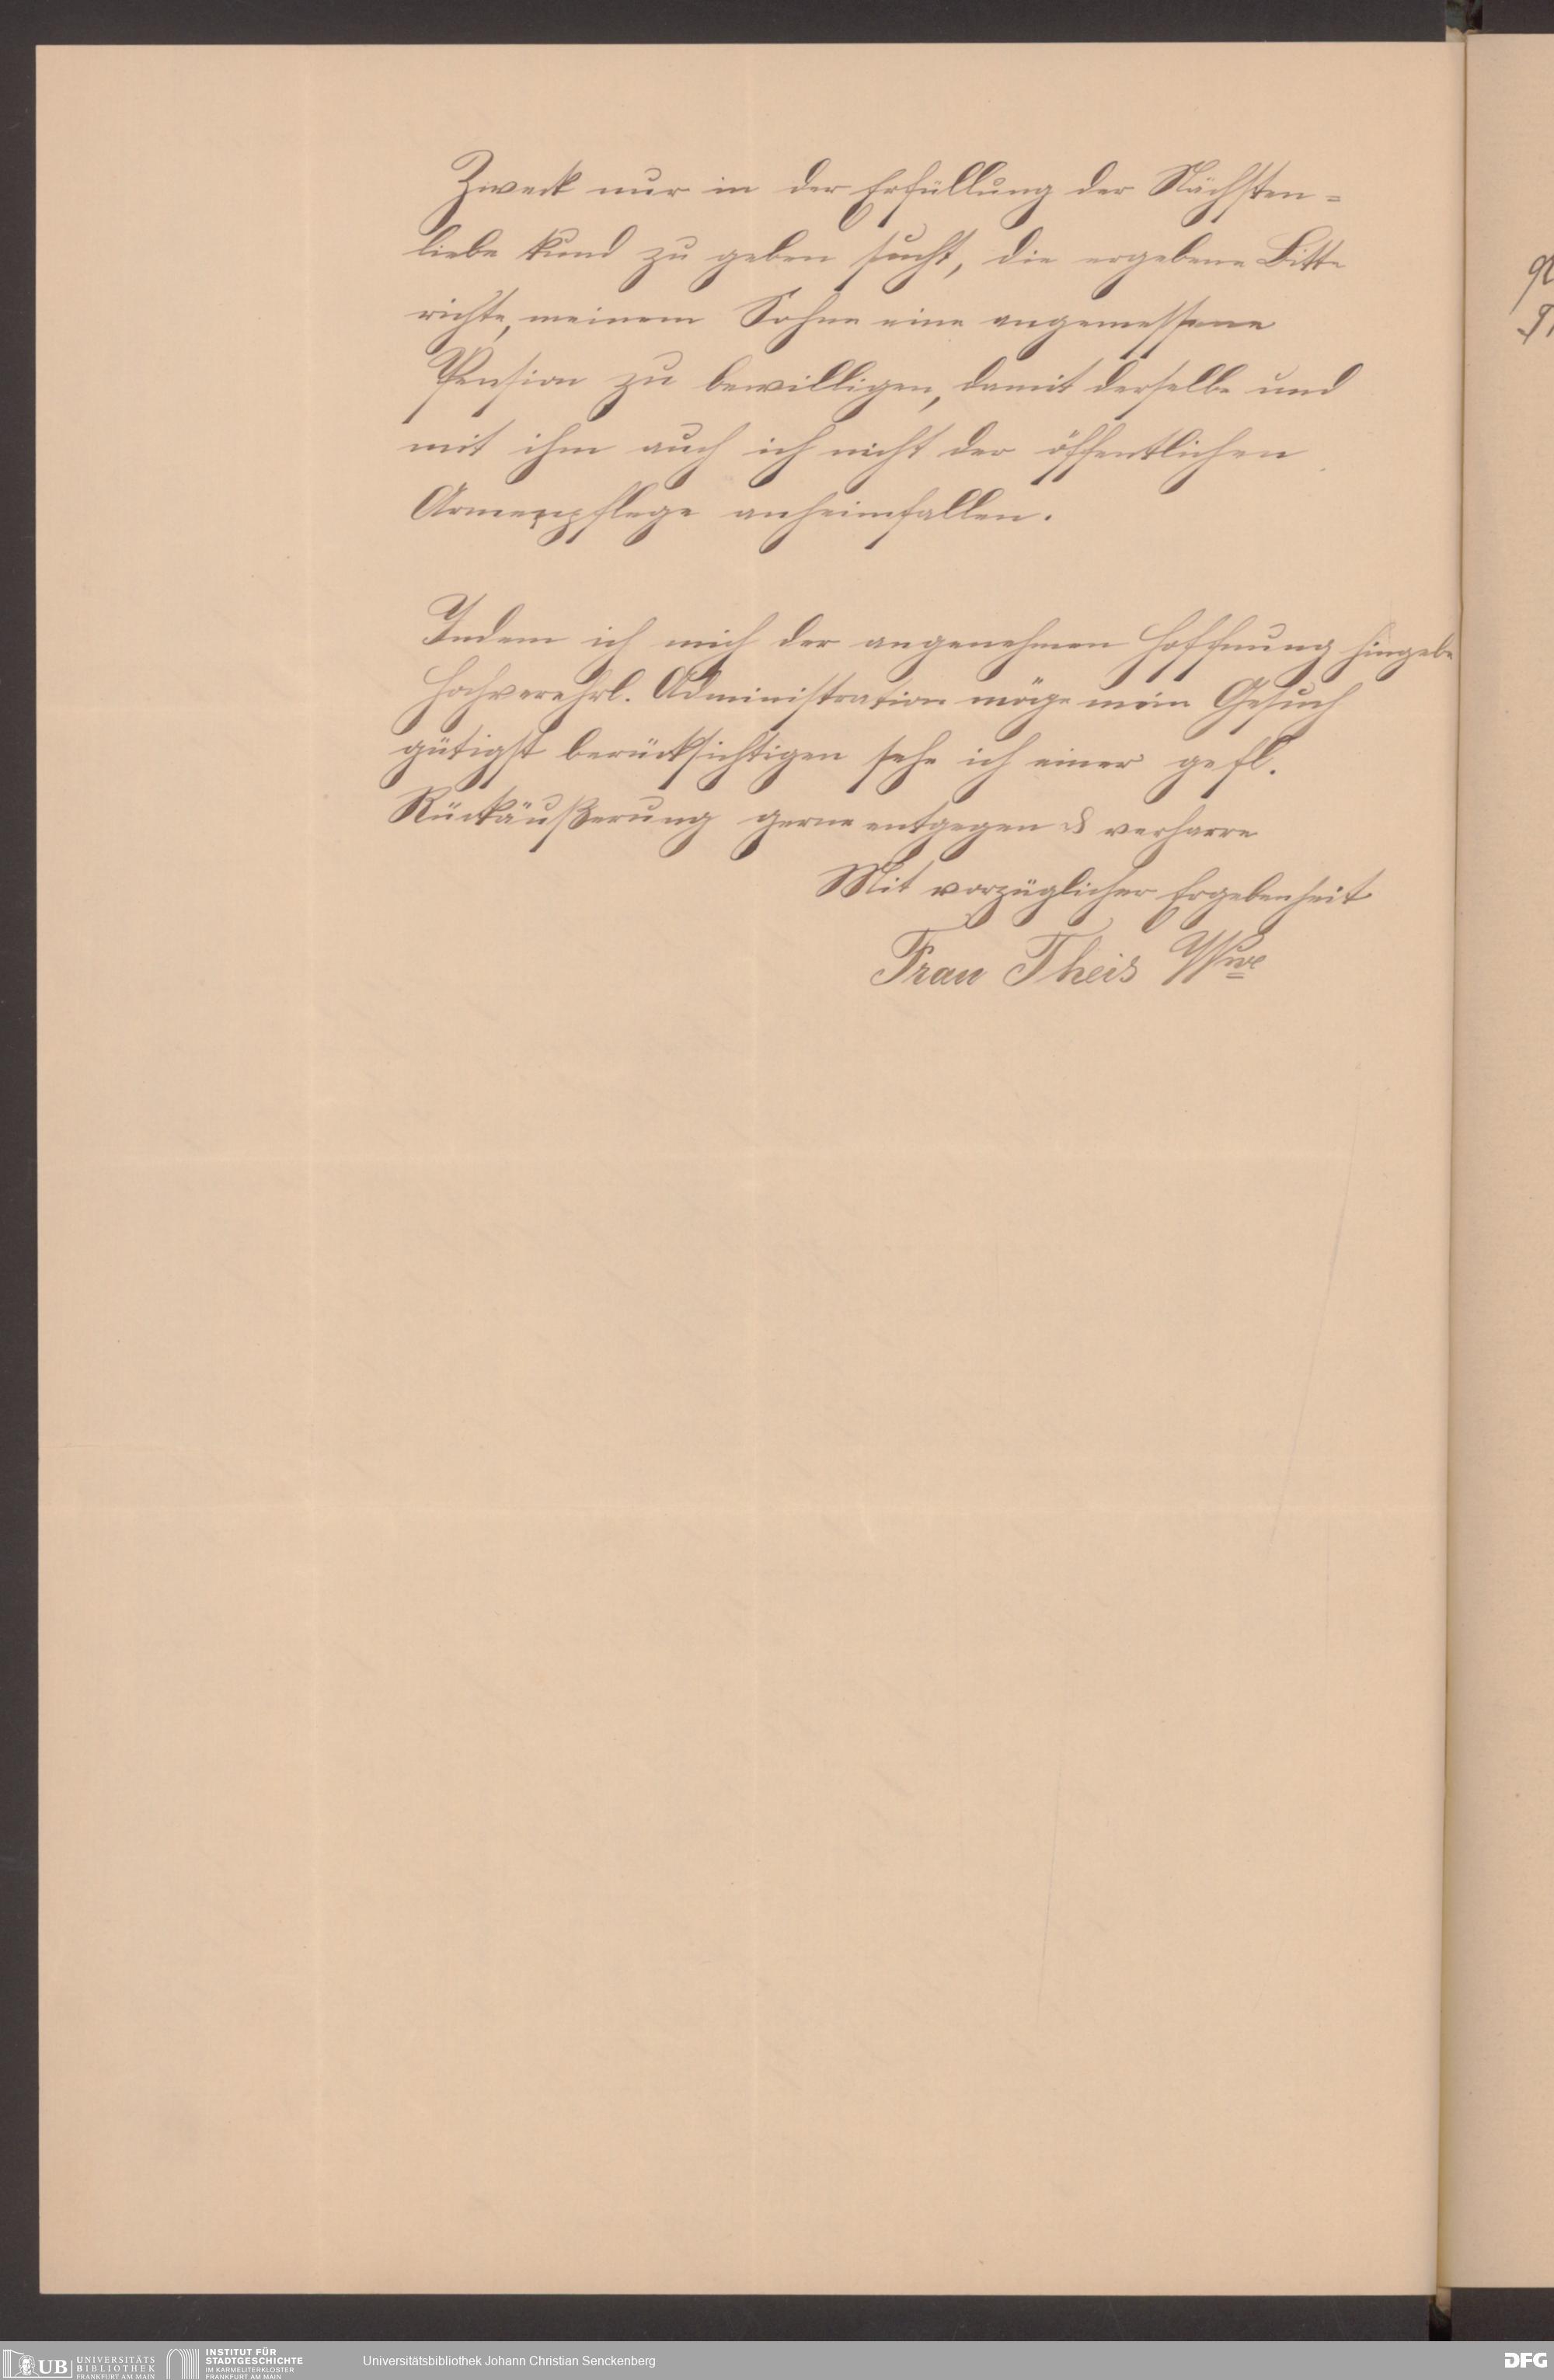 Zweck nur in der Erfüllung der Nächsten=
liebe kund zu geben sucht, die ergebene Bitte
richte, meinem Sohne eine angemessene
Pension zu bewilligen, damit derselbe und
mit ihm auch ich nicht der öffentlichen
Armenpflege anheimfallen.
Indem ich mich der angenehmen Hoffnung hingebe
Hochverehrl. Administration möge mein Gesuch
gütigst berücksichtigen sehe ich einer gefl.
Rückäußerung gerne entgegen & verharre
Mit vorzüglicher Ergebenheit
Frau Theis Wwe
UB UNIVERSITÄTS BIBLIOTHEK FRANKFURT AM MAIN
INSTITUT FÜR STADTGESCHICHTE IM KARMELITERKLOSTER FRANKFURT AM MAIN
Universitätsbibliothek Johann Christian Senckenberg
DFG